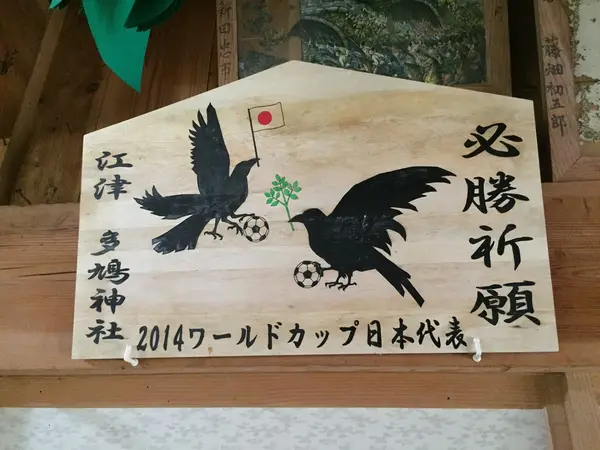 必勝祈願
江津 多鳩神社
2014ワールドカップ日本代表
藤畑初五郎